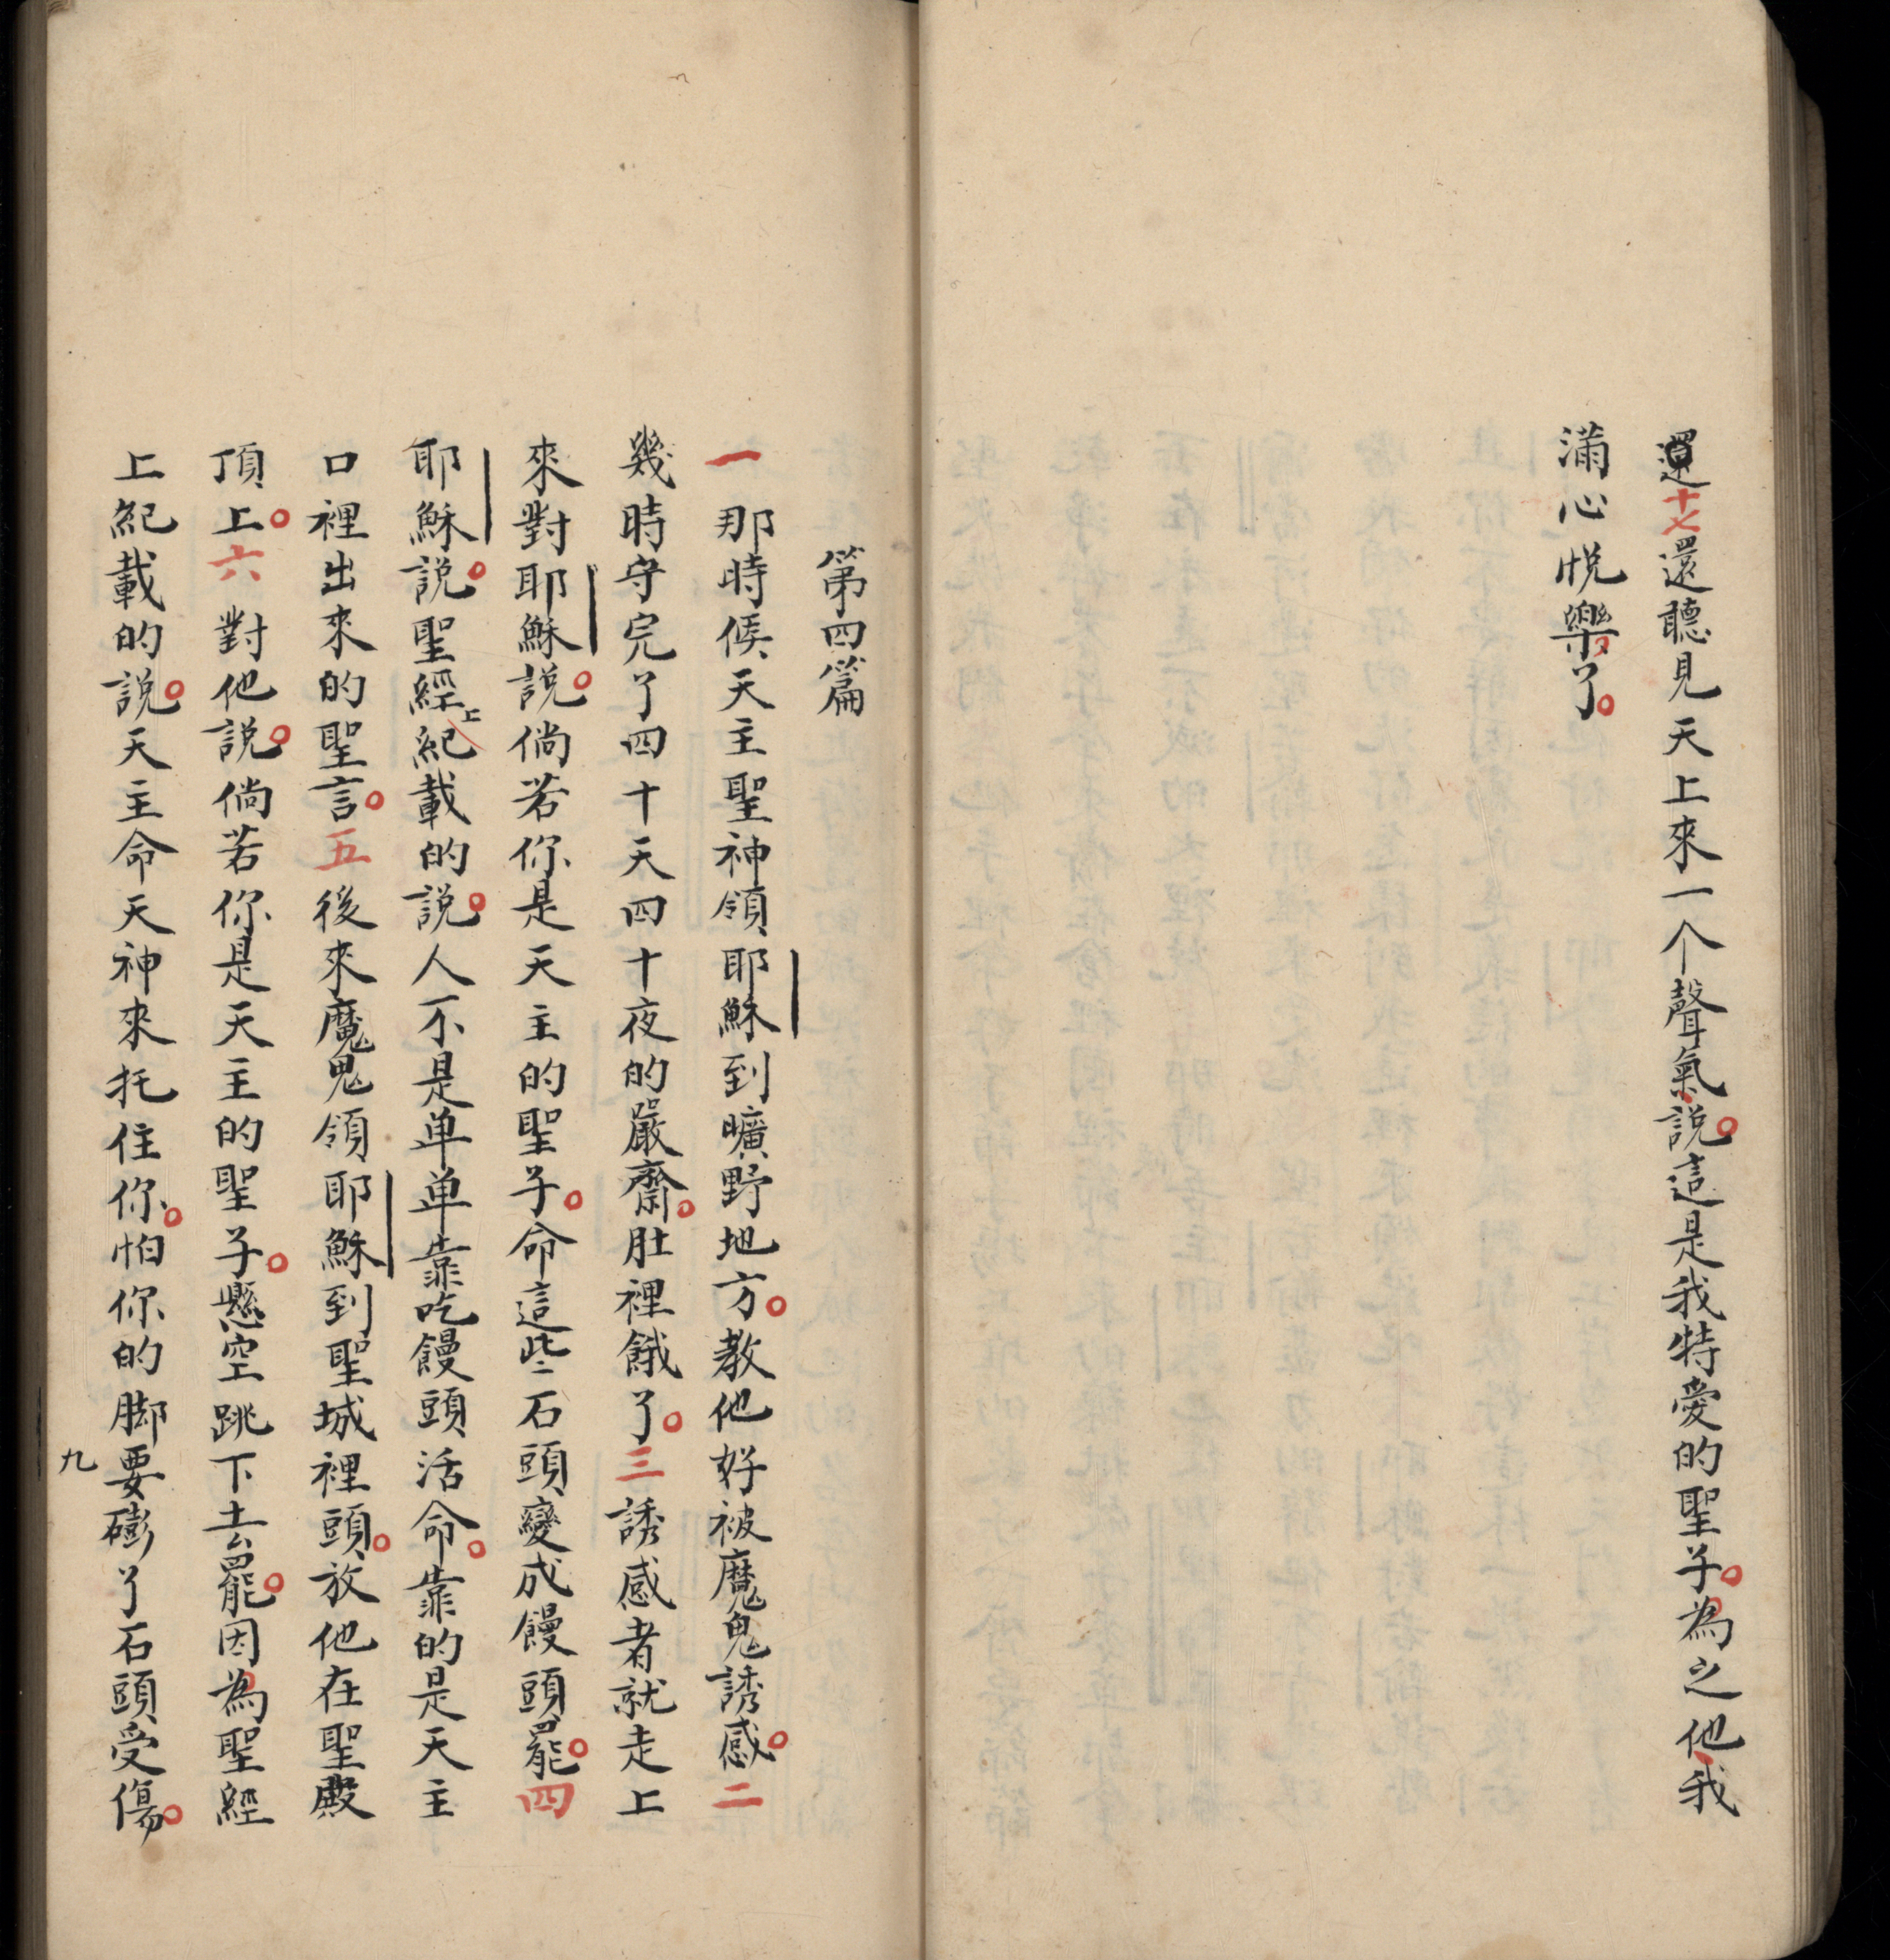 還十七還聽見天上來一个聲氣說。這是我特愛的聖子。為之他我
滿心悅樂了。
第四篇
一那時候天主聖神領耶穌到曠野地方。教他好被魔鬼誘感。二
幾時守完了四十天四十夜的嚴齋。肚裡餓了。三誘感者就走上
來對耶穌說。倘若你是天主的聖子。命這些石頭變成饅頭罷。四
耶穌說。聖經上紀載的說。人不是单单靠吃饅頭活命。靠的是天主
口裡出來的聖言。五後來魔鬼領耶穌到聖城裡頭。放他在聖殿
頂上。六對他說。倘若你是天主的聖子。懸空跳下去罷。因為聖經
上紀載的說。天主命天神來托住你。怕你的脚要磞了石頭受傷。
九